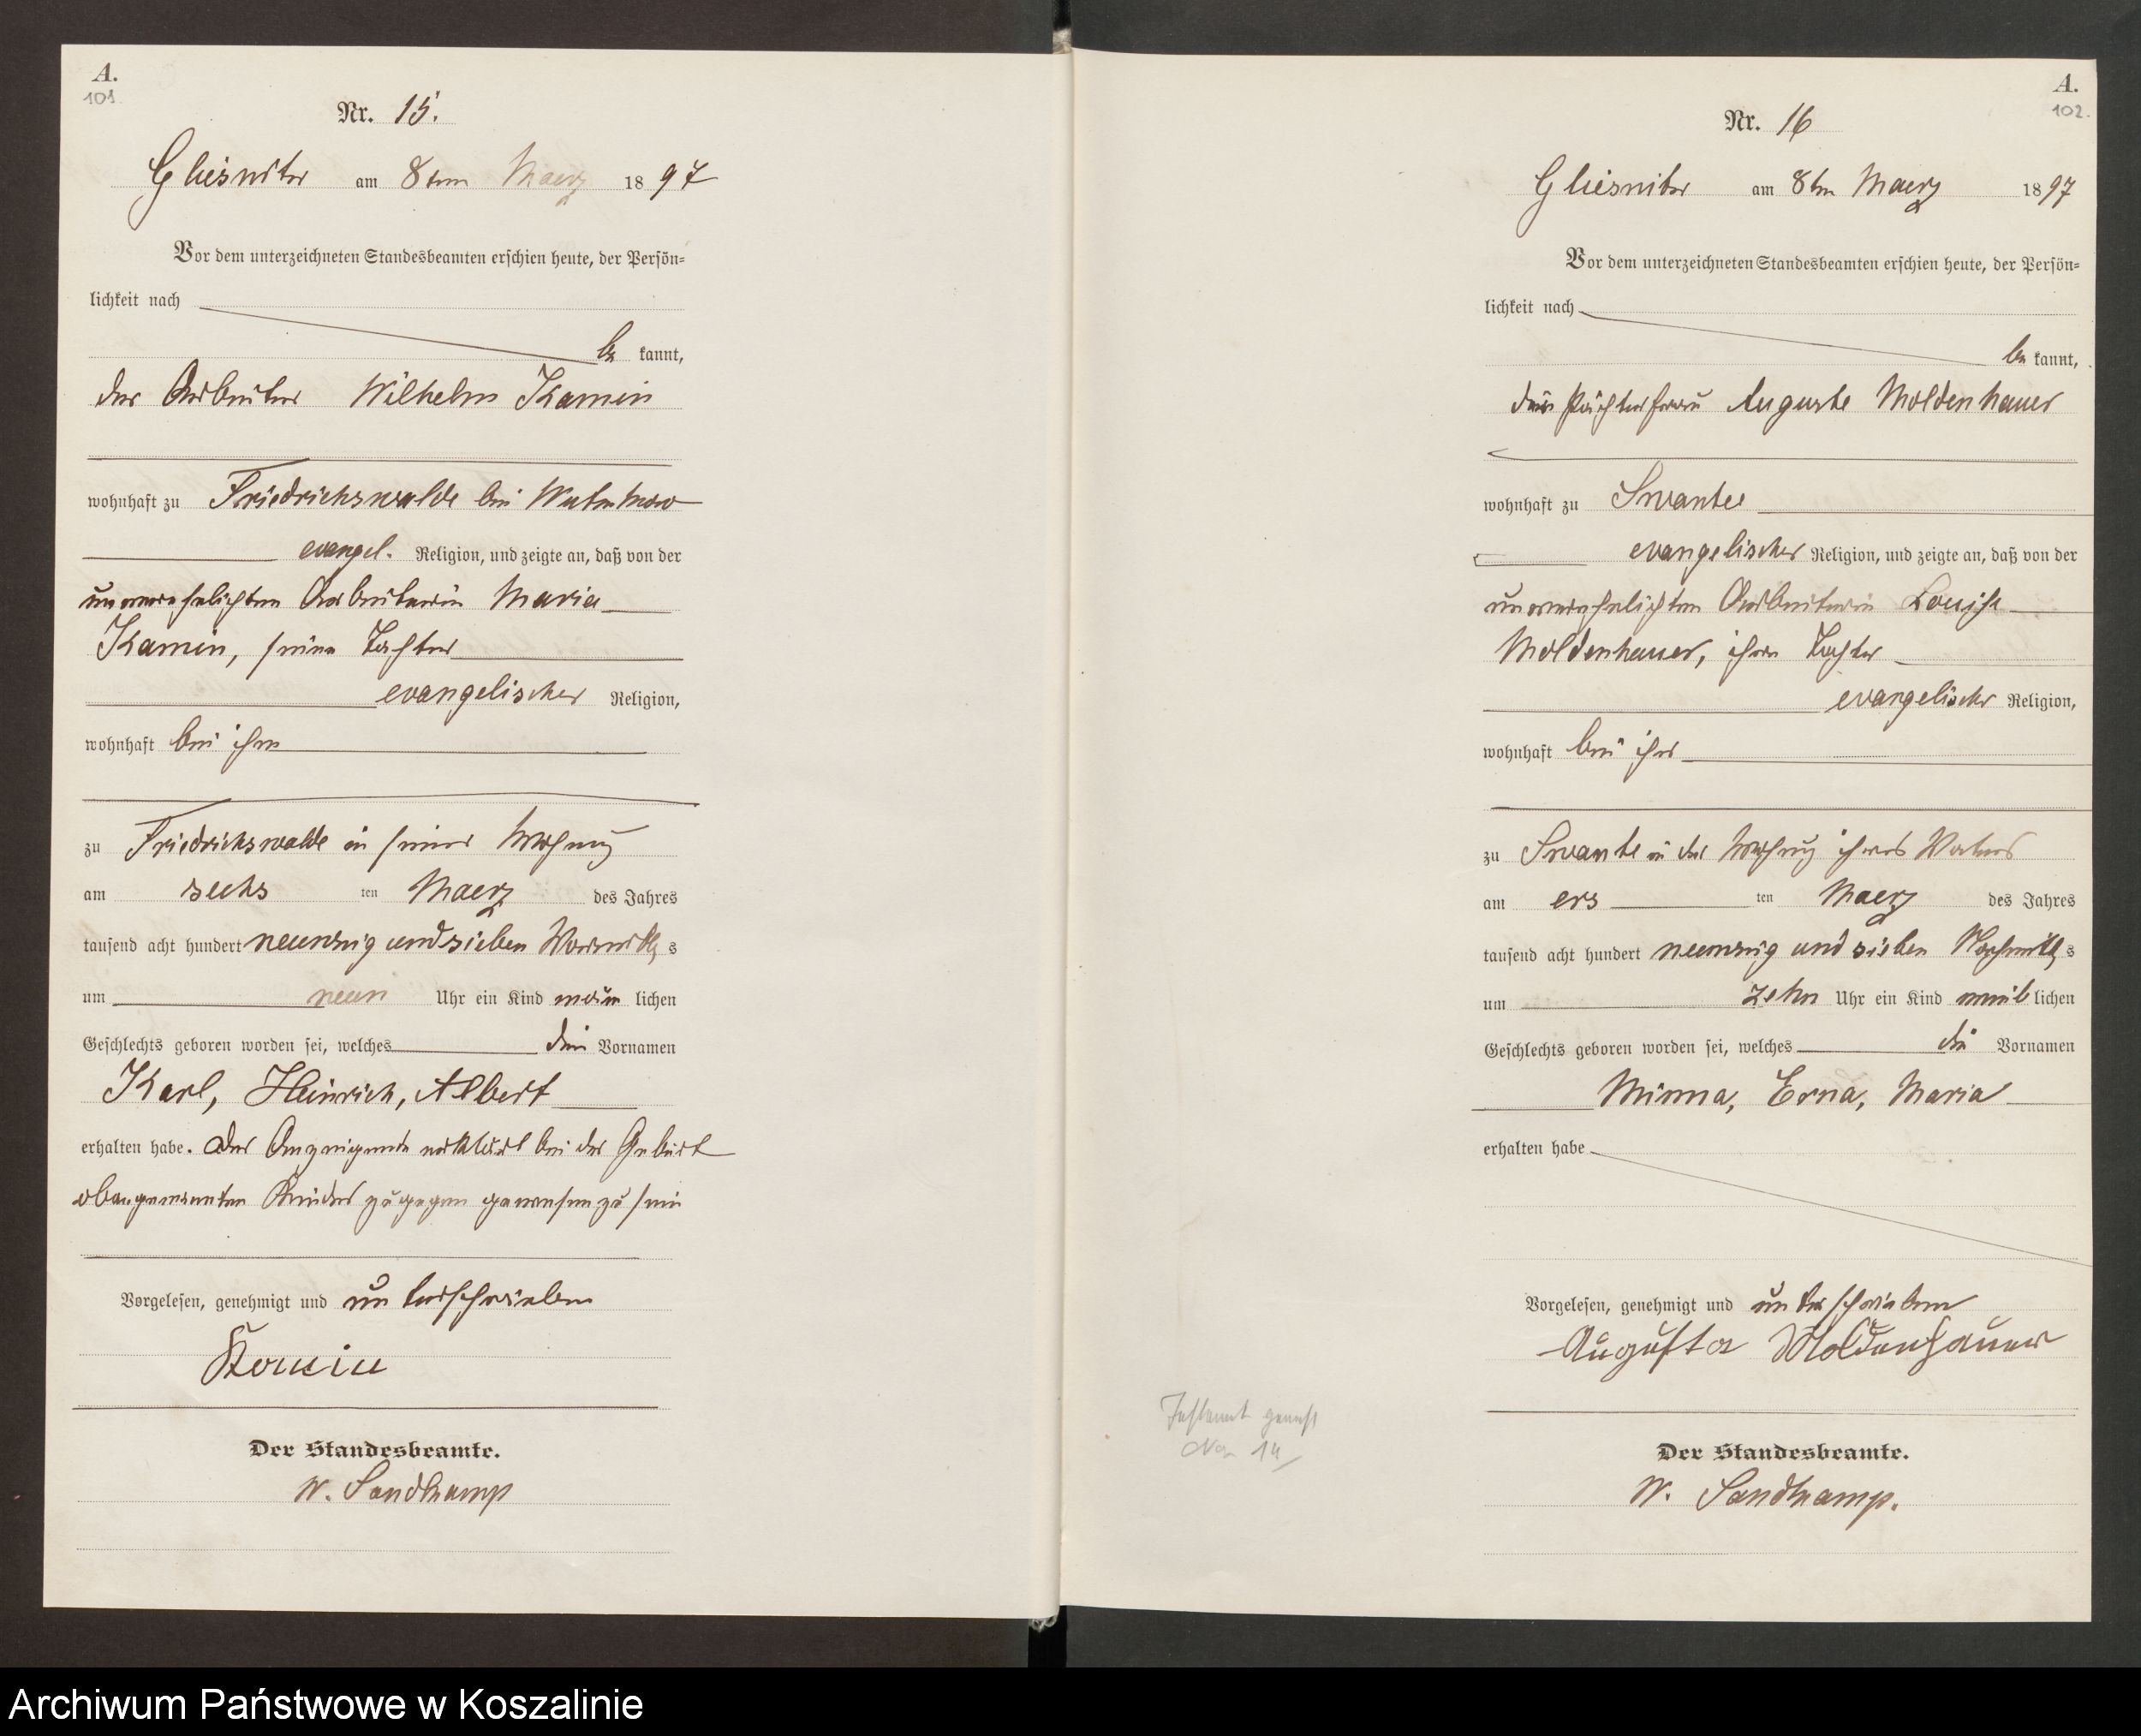 A.
101.
Nr. 15.
Gliesnitz am 8ten Maerz 1897
Vor dem unterzeichneten Standesbeamten erschien heute, der Persön=
lichkeit nach
be kannt,
der Arbeiter Wilhelm Kamin
wohnhaft zu Friedrichswalde bei
evangel. Religion, und zeigte an, daß von der
unverehelichten Arbeiterin Maria
Kamin, seine Tochter
evangelischer Religion,
wohnhaft bei ihm
zu Friedrichswalde in seiner Wohnung
am sechs ten Maerz des Jahres
tausend acht hundert neunzig und sieben Vormittags
um neun Uhr ein Kind männ lichen
Geschlechts geboren worden sei, welches die Vornamen
Karl, Heinrich, Albert
erhalten habe. Der Anzeigende erklärt bei der Geburt
obengenannten Kindes zugegen gewesen zu sein
Vorgelesen, genehmigt und unterschrieben
Kamin
Der Standesbeamte.
W. Sandkamp
A.
102.
Nr. 16
Gliesnitz am 8ten Maerz 1897
Vor dem unterzeichneten Standesbeamten erschien heute, der Persön=
lichkeit nach
be kannt,
die Pächterfrau Auguste Moldenhauer
wohnhaft zu Swante
evangelischer Religion, und zeigte an, daß von der
unverehelichten Arbeiterin Louise
Moldenhauer, ihre Tochter
evangelischer Religion,
wohnhaft bei ihr
zu Swante in der Wohnung ihres Vaters
am ers ten Maerz des Jahres
tausend acht hundert neunzig und sieben Nachmittags
um zehn Uhr ein Kind weib lichen
Geschlechts geboren worden sei, welches die Vornamen
Minna, Erna, Maria
erhalten habe
Vorgelesen, genehmigt und unterschrieben
Augusta Moldenhauer
Der Standesbeamte.
W. Sandkamp.
Archiwum Państwowe w Koszalinie